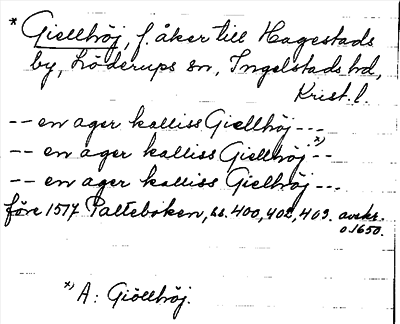 * Giellhöj, f. åker till Hagestads
by, Löderups sn, Ingelstads hd,
Krist. l.
-- en ager kalliss Giellhöj ---
-- en ager kalliss Giellhöj x) --
-- en ager kalliss Giellhöj ---
före 1517 Palteboken, ss. 400, 402, 409. avskr.
o. 1650.
x) A: Giöllhöj.